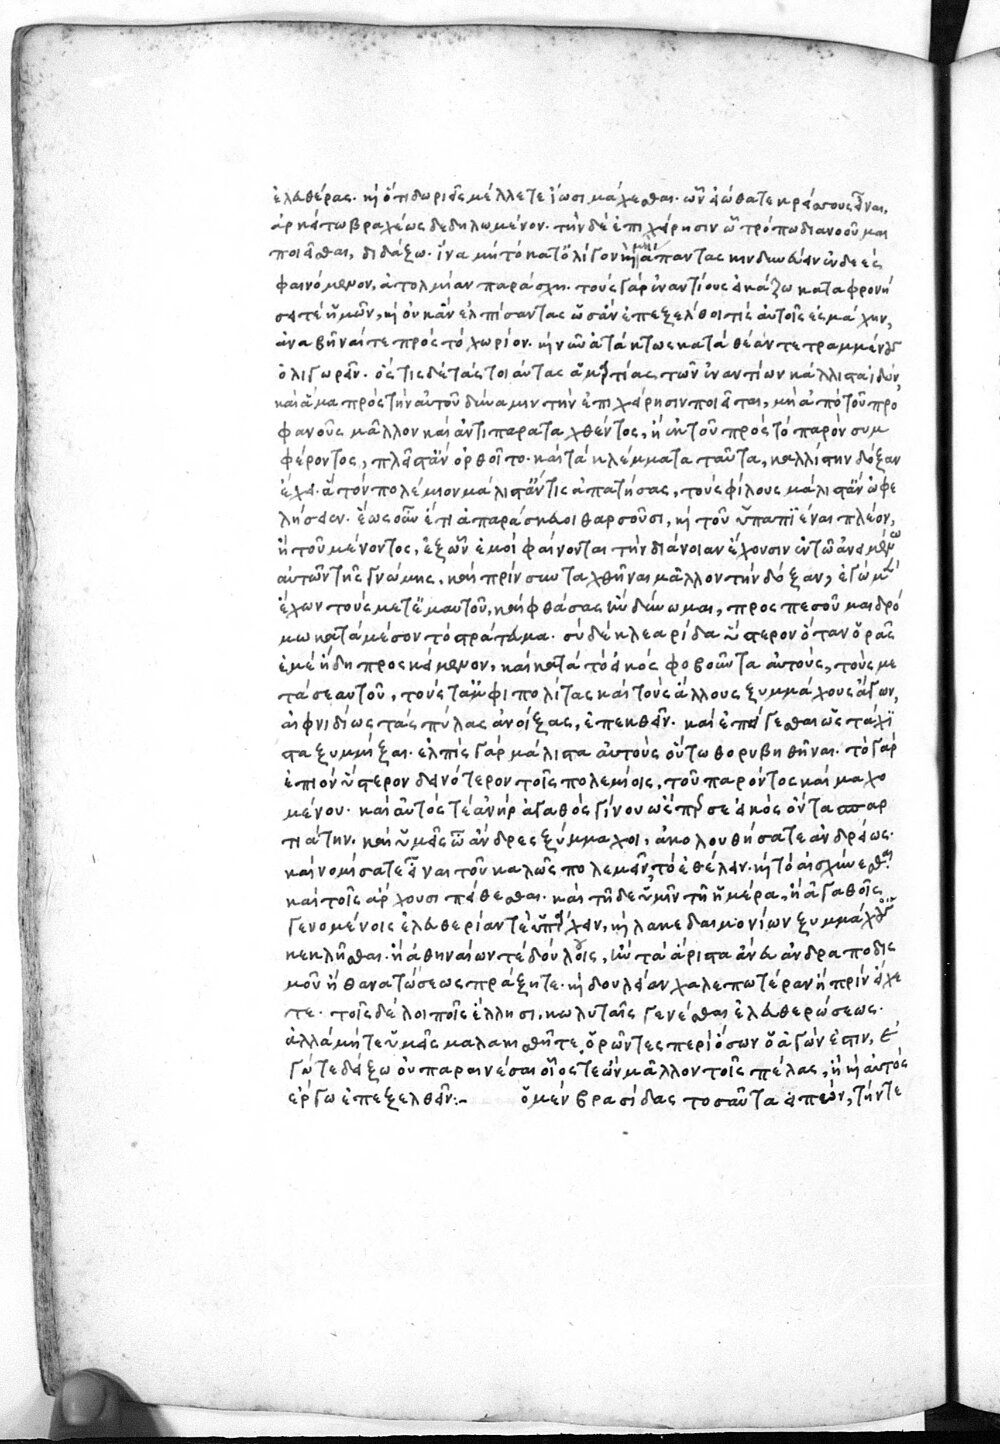 ἐλευθέρας. καὶ ὅτι δωριεῖς μέλλετε ἴωσι μάχεσθαι. ὧν εἰώθατε κρείσσους εἶναι,
ἀρκείτω βραχέως δεδηλωμένον. τὴν δὲ ἐπιχείρησιν ὧ τρόπω διανοοῦμαι
ποιεῖσθαι, διδάξω. ἵνα μὴ τὸ κατ' ὀλίγον καὶ μὴ ἅπαντας κινδυνεύειν ἐνδεὲς
φαινόμενον, ἀτολμίαν παράσχη. τοὺς γὰρ ἐναντίους εἰκάζω καταφρονή
σει τὲ ἡμῶν, καὶ οὐκ ἂν ἐλπίσαντας ὡς ἂν ἐπεξέλθοι τίς αὐτοῖς ἐς μάχην,
ἀναβῆναί τε πρὸς τὸ χωρίον. καὶ νῦν ἀτάκτως κατὰ θέαν τετραμμένους
ὀλιγωρεῖν. ὅστις δὲ τὰς τοιαύτας ἁμαρτίας τῶν ἐναντίων κάλλιστα ἰδὼν,
καὶ ἅμα πρὸς τὴν αὐτοῦ δύναμιν τὴν ἐπιχείρησιν ποιεῖται, μὴ ἀπὸ τοῦ προ
φανοῦς μᾶλλον καὶ ἀντιπαραταχθέντος, ἢ ἐκ τοῦ πρὸς τὸ παρὸν συμ
φέροντος, πλεῖστ' ἂν ὀρθοῖτο. καὶ τὰ κλέμματα ταῦτα, καλλίστην δόξαν
ἔχει. ἃ τὸν πολέμιον μάλιστ' ἄν τις ἀπατήσας, τοὺς φίλους μάλιστ' ἂν ὠφε
λήσειεν. ἕως οὖν ἔτι ἀπαράσκευοι θαρσοῦσι, καὶ τοῦ ὑπαπϊέναι πλέον,
ἢ τοῦ μένοντος, ἐξ ὧν ἐμοὶ φαίνονται τὴν διάνοιαν ἔχουσιν ἐν τῶ ἀνειμένω
αὐτῶν τῆς γνώμης. καὶ πρὶν συνταχθῆναι μᾶλλον τὴν δόξαν, ἐγὼ μὲν
ἔχων τοὺς μετ' ἐμαυτοῦ, καὶ φθάσας ἢν δύνωμαι, προσπεσοῦμαι δρό
μω κατὰ μέσον τὸ στράτευμα. σὺ δὲ κλεαρίδα ὕστερον ὅταν ὁρᾶς
ἐμὲ ἤδη προσκείμενον, καὶ κατὰ τὸ εἰκὸς φοβοῦντα αὐτοὺς, τοὺς με
τὰ σεαυτοῦ, τούς τ' ἀμφιπολίτας καὶ τοὺς ἄλλους ξυμμάχους ἄγων,
αἰφνιδίως τὰς πύλας ἀνοίξας, ἐπεκθεῖν. καὶ ἐπείγεσθαι ὡς τάχϊ
στα ξυμμῖξαι. ἐλπὶς γὰρ μάλιστα αὐτοὺς οὕτω θορυβηθῆναι. τὸ γὰρ
ἐπιὸν ὕστερον δεινότερον τοῖς πολεμίοις, τοῦ παρόντος καὶ μαχο
μένου. καὶ αὐτός τὲ ἀνὴρ ἀγαθὸς γίνου ὥσπερ σὲ εἰκὸς ὄντα σπαρ
τιάτην. καὶ ὑμεῖς ὦ ἄνδρες ξύμμαχοι, ἀκολουθήσατε ἀνδρείως.
καὶ νομίσατε εἶναι τοῦ καλῶς πολεμεῖν, τὸ ἐθέλειν. καὶ τὸ αἰσχύνεσθαι
καὶ τοῖς ἄρχουσι πείθεσθαι. καὶ τῆδε ὑμῖν τῆ ἡμέρα, ἢ ἀγαθοῖς
γενομένοις ἐλευθερίαν τὲ ὑπάρχειν, καὶ λακεδαιμονίων ξυμμάχοις
κεκλῆσθαι. ἢ ἀθηναίων τὲ δούλοις, ἢν τὰ ἄριστα ἄνευ ἀνδραποδισ
μοῦ ἢ θανατώσεως πράξητε. καὶ δουλείαν χαλεπωτέραν ἢ πρὶν εἴχε
τε. τοῖς δὲ λοιποῖς ἕλλησι, κωλυταῖς γενέσθαι ἐλευθερώσεως.
ἀλλὰ μήτε ὑμεῖς μαλακισθῆτε, ὁρῶντες περὶ ὅσων ὁ ἀγών ἐστιν, ἐ
γώ τε δείξω οὐ παραινέσαι οἷός τε ὢν μᾶλλον τοῖς πέλας, ἢ καὶ αὐτὸς
ἔργω ἐπεξελθεῖν:- ὁ μὲν βρασίδας τοσαῦτα εἰπὼν, τήν τε